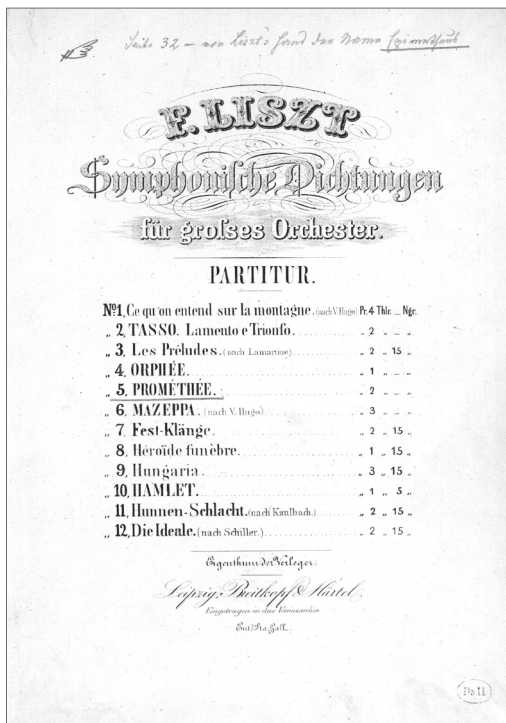 Seite 32 – von Liszt's Hand der Name Epimetheus
F. LISZT
Symphonische Dichtungen
für grosses Orchester.
PARTITUR.
No. 1, Ce qu'on entend sur la montagne. (nach V. Hugo) Pr. 4 Thlr. _ Ngr.
„ 2, TASSO. Lamento e Trionfo. „ 2 „ _ „
„ 3, Les Préludes. (nach Lamartine) „ 2 „ 15 „
„ 4, ORPHÉE. „ 1 „ _ „
„ 5, PROMÉTHÉE. „ 2 „ _ „
„ 6, MAZEPPA. (nach V. Hugo) „ 3 „ _ „
„ 7, Fest-Klänge. „ 2 „ 15 „
„ 8, Héroïde funèbre. „ 1 „ 15 „
„ 9, Hungaria. „ 3 „ 15 „
„ 10, HAMLET. „ 1 „ 5 „
„ 11, Hunnen-Schlacht. (nach Kaulbach.) „ 2 „ 15 „
„ 12, Die Ideale. (nach Schiller.) „ 2 „ 15 „
Eigenthum der Verleger.
Leipzig, Breitkopf & Härtel.
Eingetragen in das Vereinsarchiv
Ent. Sta. Hall.